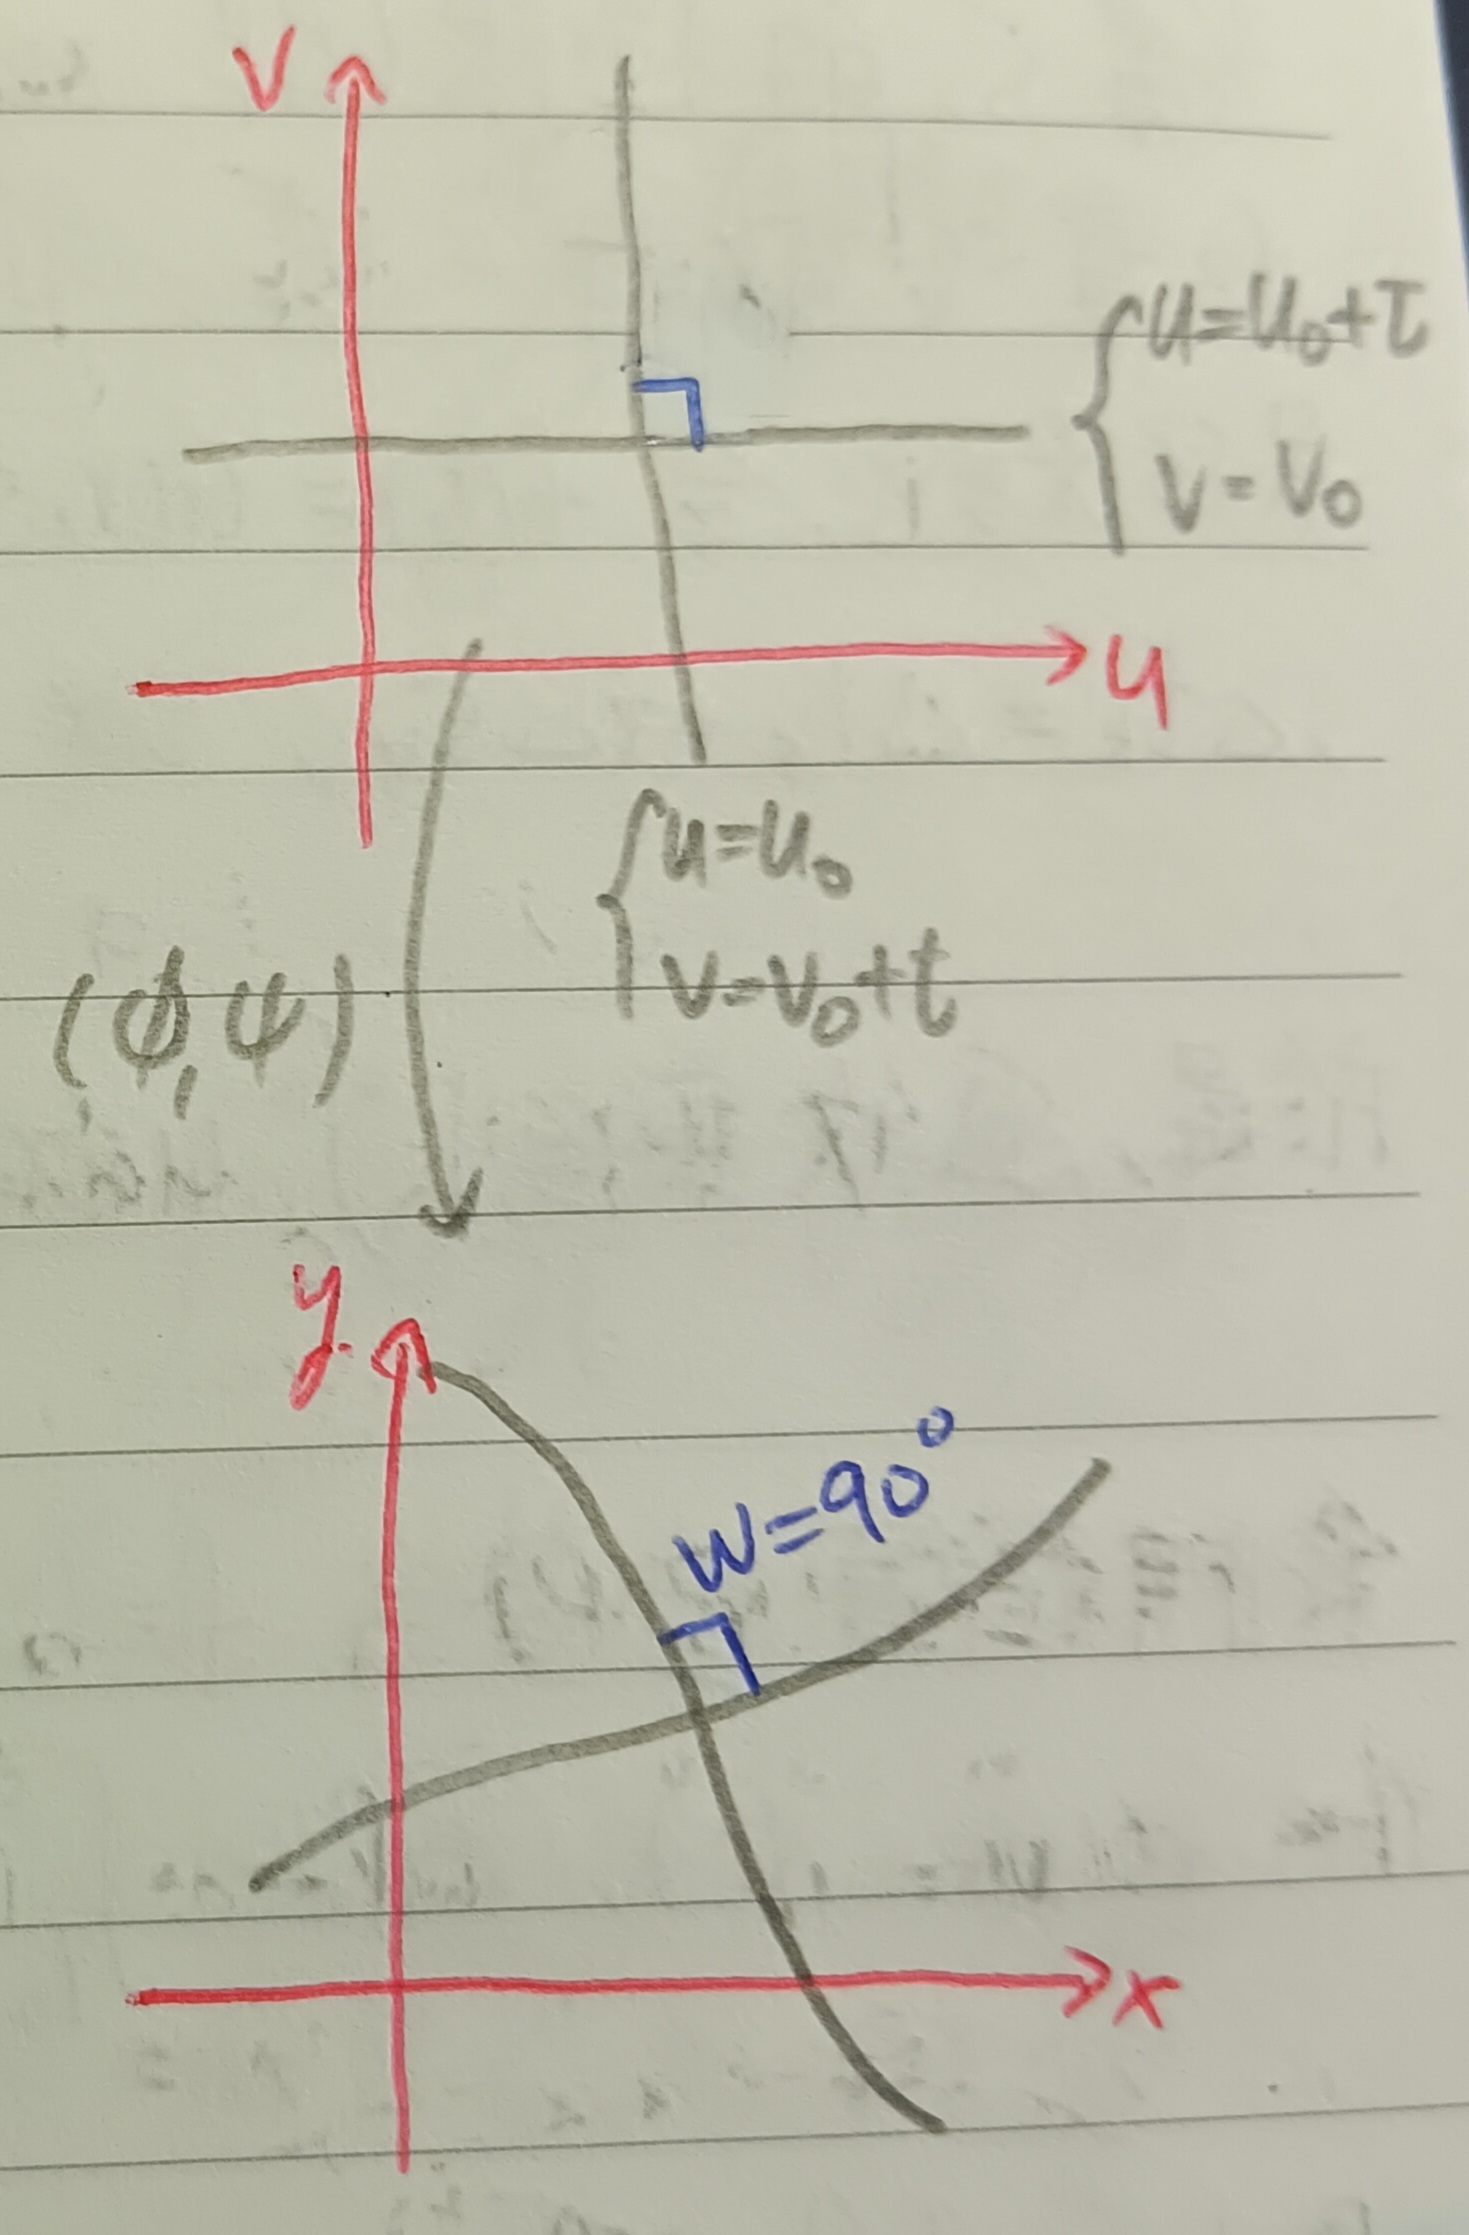 v
u=u₀+τ
v=v₀
u
u=u₀
v=v₀+t
(ϕ,ψ)
y
w=90°
x